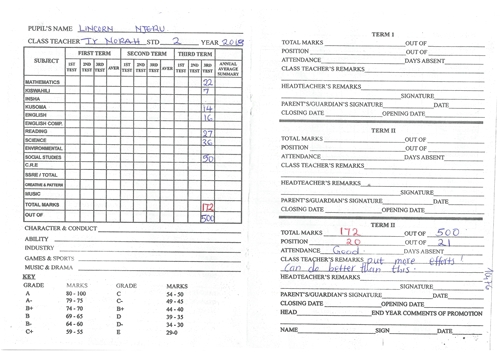 PUPIL'S NAME LINCORN NJERU
CLASS TEACHER Tr NORAH STD 2 YEAR 2018
SUBJECT FIRST TERM SECOND TERM THIRD TERM
1ST TEST 2ND TEST 3RD TEST AVER 1ST TEST 2ND TEST 3RD TEST AVER 1ST TEST 2ND TEST 3RD TEST ANNUAL AVERAGE SUMMARY
MATHEMATICS 22
KISWAHILI 7
INSHA
KUSOMA 14
ENGLISH 16
ENGLISH COMP.
READING 27
SCIENCE 36
ENVIRONMENTAL
SOCIAL STUDIES 50
C.R.E
SSRE / TOTAL
CREATIVE & PATTERN
MUSIC
TOTAL MARKS 172
OUT OF 500
CHARACTER & CONDUCT
ABILITY
INDUSTRY
GAMES & SPORTS
MUSIC & DRAMA
KEY
GRADE MARKS GRADE MARKS
A 80 - 100 C 54 - 50
A- 79 - 75 C- 49 - 45
B+ 74 - 70 B+ 44 - 40
B 69 - 65 D 39 - 35
B- 64 - 60 D- 34 - 30
C+ 59 - 55 E 29-0
TERM I
TOTAL MARKS OUT OF
POSITION OUT OF
ATTENDANCE DAYS ABSENT
CLASS TEACHER'S REMARKS
SIGNATURE
HEADTEACHER'S REMARKS
SIGNATURE
PARENT'S/GUARDIAN'S SIGNATURE DATE
CLOSING DATE OPENING DATE
TERM II
TOTAL MARKS OUT OF
POSITION OUT OF
ATTENDANCE DAYS ABSENT
CLASS TEACHER'S REMARKS
HEADTEACHER'S REMARKS
SIGNATURE
PARENT'S/GUARDIAN'S SIGNATURE DATE
CLOSING DATE OPENING DATE
TERM II
TOTAL MARKS 172 OUT OF 500
POSITION 20 OUT OF 21
ATTENDANCE Good DAYS ABSENT
CLASS TEACHER'S REMARKS put more efforts!
Can do better than this.
HEADTEACHER'S REMARKS
SIGNATURE
PARENT'S/GUARDIAN'S SIGNATURE DATE
CLOSING DATE OPENING DATE
HEAD END YEAR COMMENTS OF PROMOTION
NAME SIGN DATE